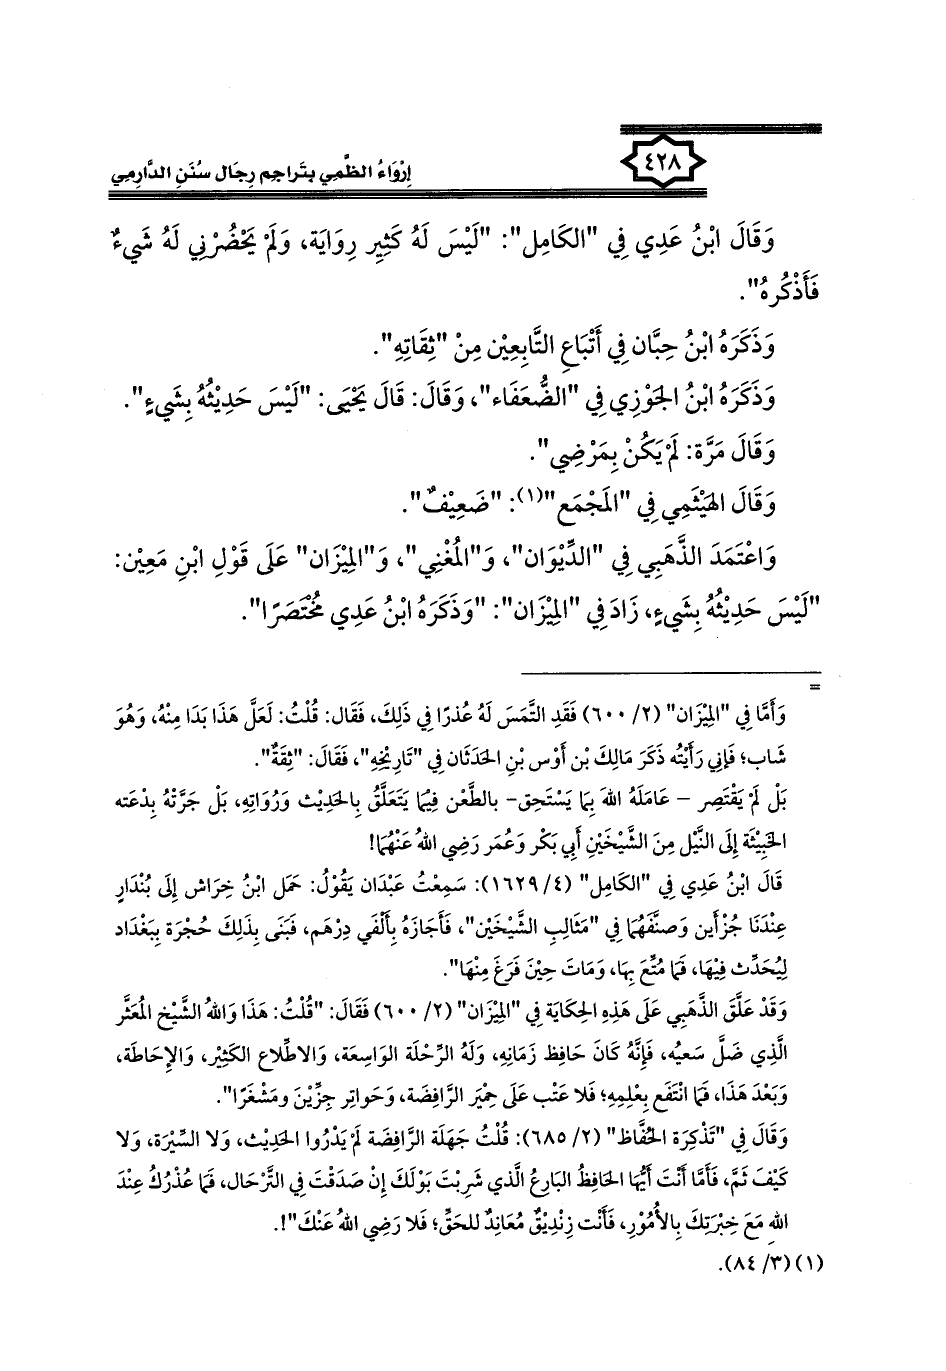 ٤٢٨
إِرْوَاءُ الظَّمِي بتَراجِم رِجَال سُنَنِ الدَّارِمِي
وَقَالَ ابْنُ عَدِي فِي "الكَامِل": "لَيْسَ لَهُ كَثِيِر رِوَايَة، وَلَمْ يَحْضُرْنِي لَهُ شَيءٌ
فَأَذْكُرهُ".
وَذَكَرَهُ ابْنُ حِبَّان فِي أَتْبَاعِ التَّابِعِيْن مِنْ "ثِقَاتِهِ".
وَذَكَرَهُ ابْنُ الجَوْزِي فِي "الضُّعَفَاء"، وَقَالَ: قَالَ يَحْيَى: "لَيْسَ حَدِيْثُهُ بِشَيءٍ".
وَقَالَ مَرَّة: لَمْ يَكُنْ بِمَرْضِي".
وَقَالَ الهَيْثَمِي فِي "المَجْمَع"(١): "ضَعِيْفٌ".
وَاعْتَمَدَ الذَّهَبِي فِي "الدِّيْوَان"، وَ"المُغْنِي"، وَ"المِيْزَان" عَلَى قَوْلِ ابْنِ مَعِيْن:
"لَيْسَ حَدِيْثُهُ بِشَيءٍ، زَادَ فِي "المِيْزَان": "وَذَكَرَهُ ابْنُ عَدِي مُخْتَصَرًا".
=
وَأَمَّا فِي "المِيْزَان" (٢/ ٦٠٠) فَقَدِ التَّمَسَ لَهُ عُذرًا فِي ذَلِكَ، فَقَال: قُلْتُ: لَعَلَّ هَذَا بَدَا مِنْهُ، وَهُوَ
شَاب؛ فَإِنِي رَأَيْتُه ذَكَرَ مَالِكَ بْن أَوْس بْنِ الحَدَثَان فِي "تَارِيْخِهِ"، فَقَالَ: "ثِقَةٌ".
بَلْ لَمْ يَقْتَصِر – عَامَلَهُ اللهُ بِمَا يَسْتَحِق– بالطَّعْن فِيْمَا يَتَعَلَّقُ بِالحَدِيْث وَرُوَاتِهِ، بَل جَرَّتْهُ بِدْعَته
الخَبِيْثَة إِلَى النَّيْل مِنَ الشَّيْخَيْن أَبِي بَكْر وَعُمَر رَضِي اللهُ عَنْهُمَا!
قَالَ ابْنُ عَدِي فِي "الكَامِل" (٤/ ١٦٢٩): سَمِعْتُ عَبْدَان يَقُوْلُ: حَمَل ابْنُ خِرَاش إِلَى بُنْدَارٍ
عِنْدَنَا جُزْأَين وَصَنَّفَهُمَا فِي "مَثَالِبِ الشَّيْخَيْن"، فَأَجَازَهُ بِأَلْفَي دِرْهَم، فَبَنَى بِذَلِكَ حُجْرَة بِبَغْدَاد
لِيُحَدِّث فِيْهَا، فَمَا مُتِّعَ بِهَا، وَمَاتَ حِيْنَ فَرَغَ مِنْهَا".
وَقَدْ عَلَّقَ الذَّهَبِي عَلَى هَذِهِ الحِكَايَة فِي "المِيْزَان" (٢/ ٦٠٠) فَقَالَ: "قُلْتُ: هَذَا وَاللهُ الشَّيْخ المُعَثَّر
الَّذِي ضَلَّ سَعيُه، فَإِنَّهُ كَانَ حَافِظ زَمَانِهِ، وَلَهُ الرِّحْلَة الوَاسِعَة، وَالاطِّلَاع الكَثِيْر، وَالإِحَاطَة،
وَبَعْدَ هَذَا، فَمَا انْتَفَع بِعْلِمِهِ؛ فَلا عَتْب عَلَى حَمِيْر الرَّافِضَة، وَحَوَاتِر جِزِّيْنَ ومَشْغَرًا".
وَقَالَ فِي "تَذْكِرَة الحُفَّاظ" (٢/ ٦٨٥): قُلْتُ جَهَلَة الرَّافِضَة لَمْ يَدْرُوا الحَدِيْث، وَلَا السِّيْرَة، وَلَا
كَيْفَ ثَمَّ، فَأَمَّا أَنْتَ أَيُّهَا الحَافِظُ البَارِعُ الَّذِي شَرِبْتَ بَوْلَكَ إِنْ صَدَقْتَ فِي التَّرْحَال، فَمَا عُذْرُكَ عِنْدَ
اللهِ مَعَ خِبْرَتِكَ بِالأُمُوْرِ، فَأَنْت زِنْدِيْقٌ مُعَانِدٌ للحَقِّ؛ فَلَا رَضِي اللهُ عَنْكَ"!.
(١) (٣/ ٨٤).